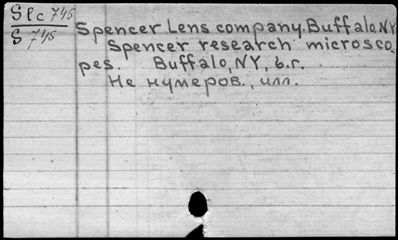 Slc 745
S 745
Spencer Lens company. Buffalo, NY
Spencer research microsco
pes. Buffalo, NY, б.г.
Не нумеров., илл.